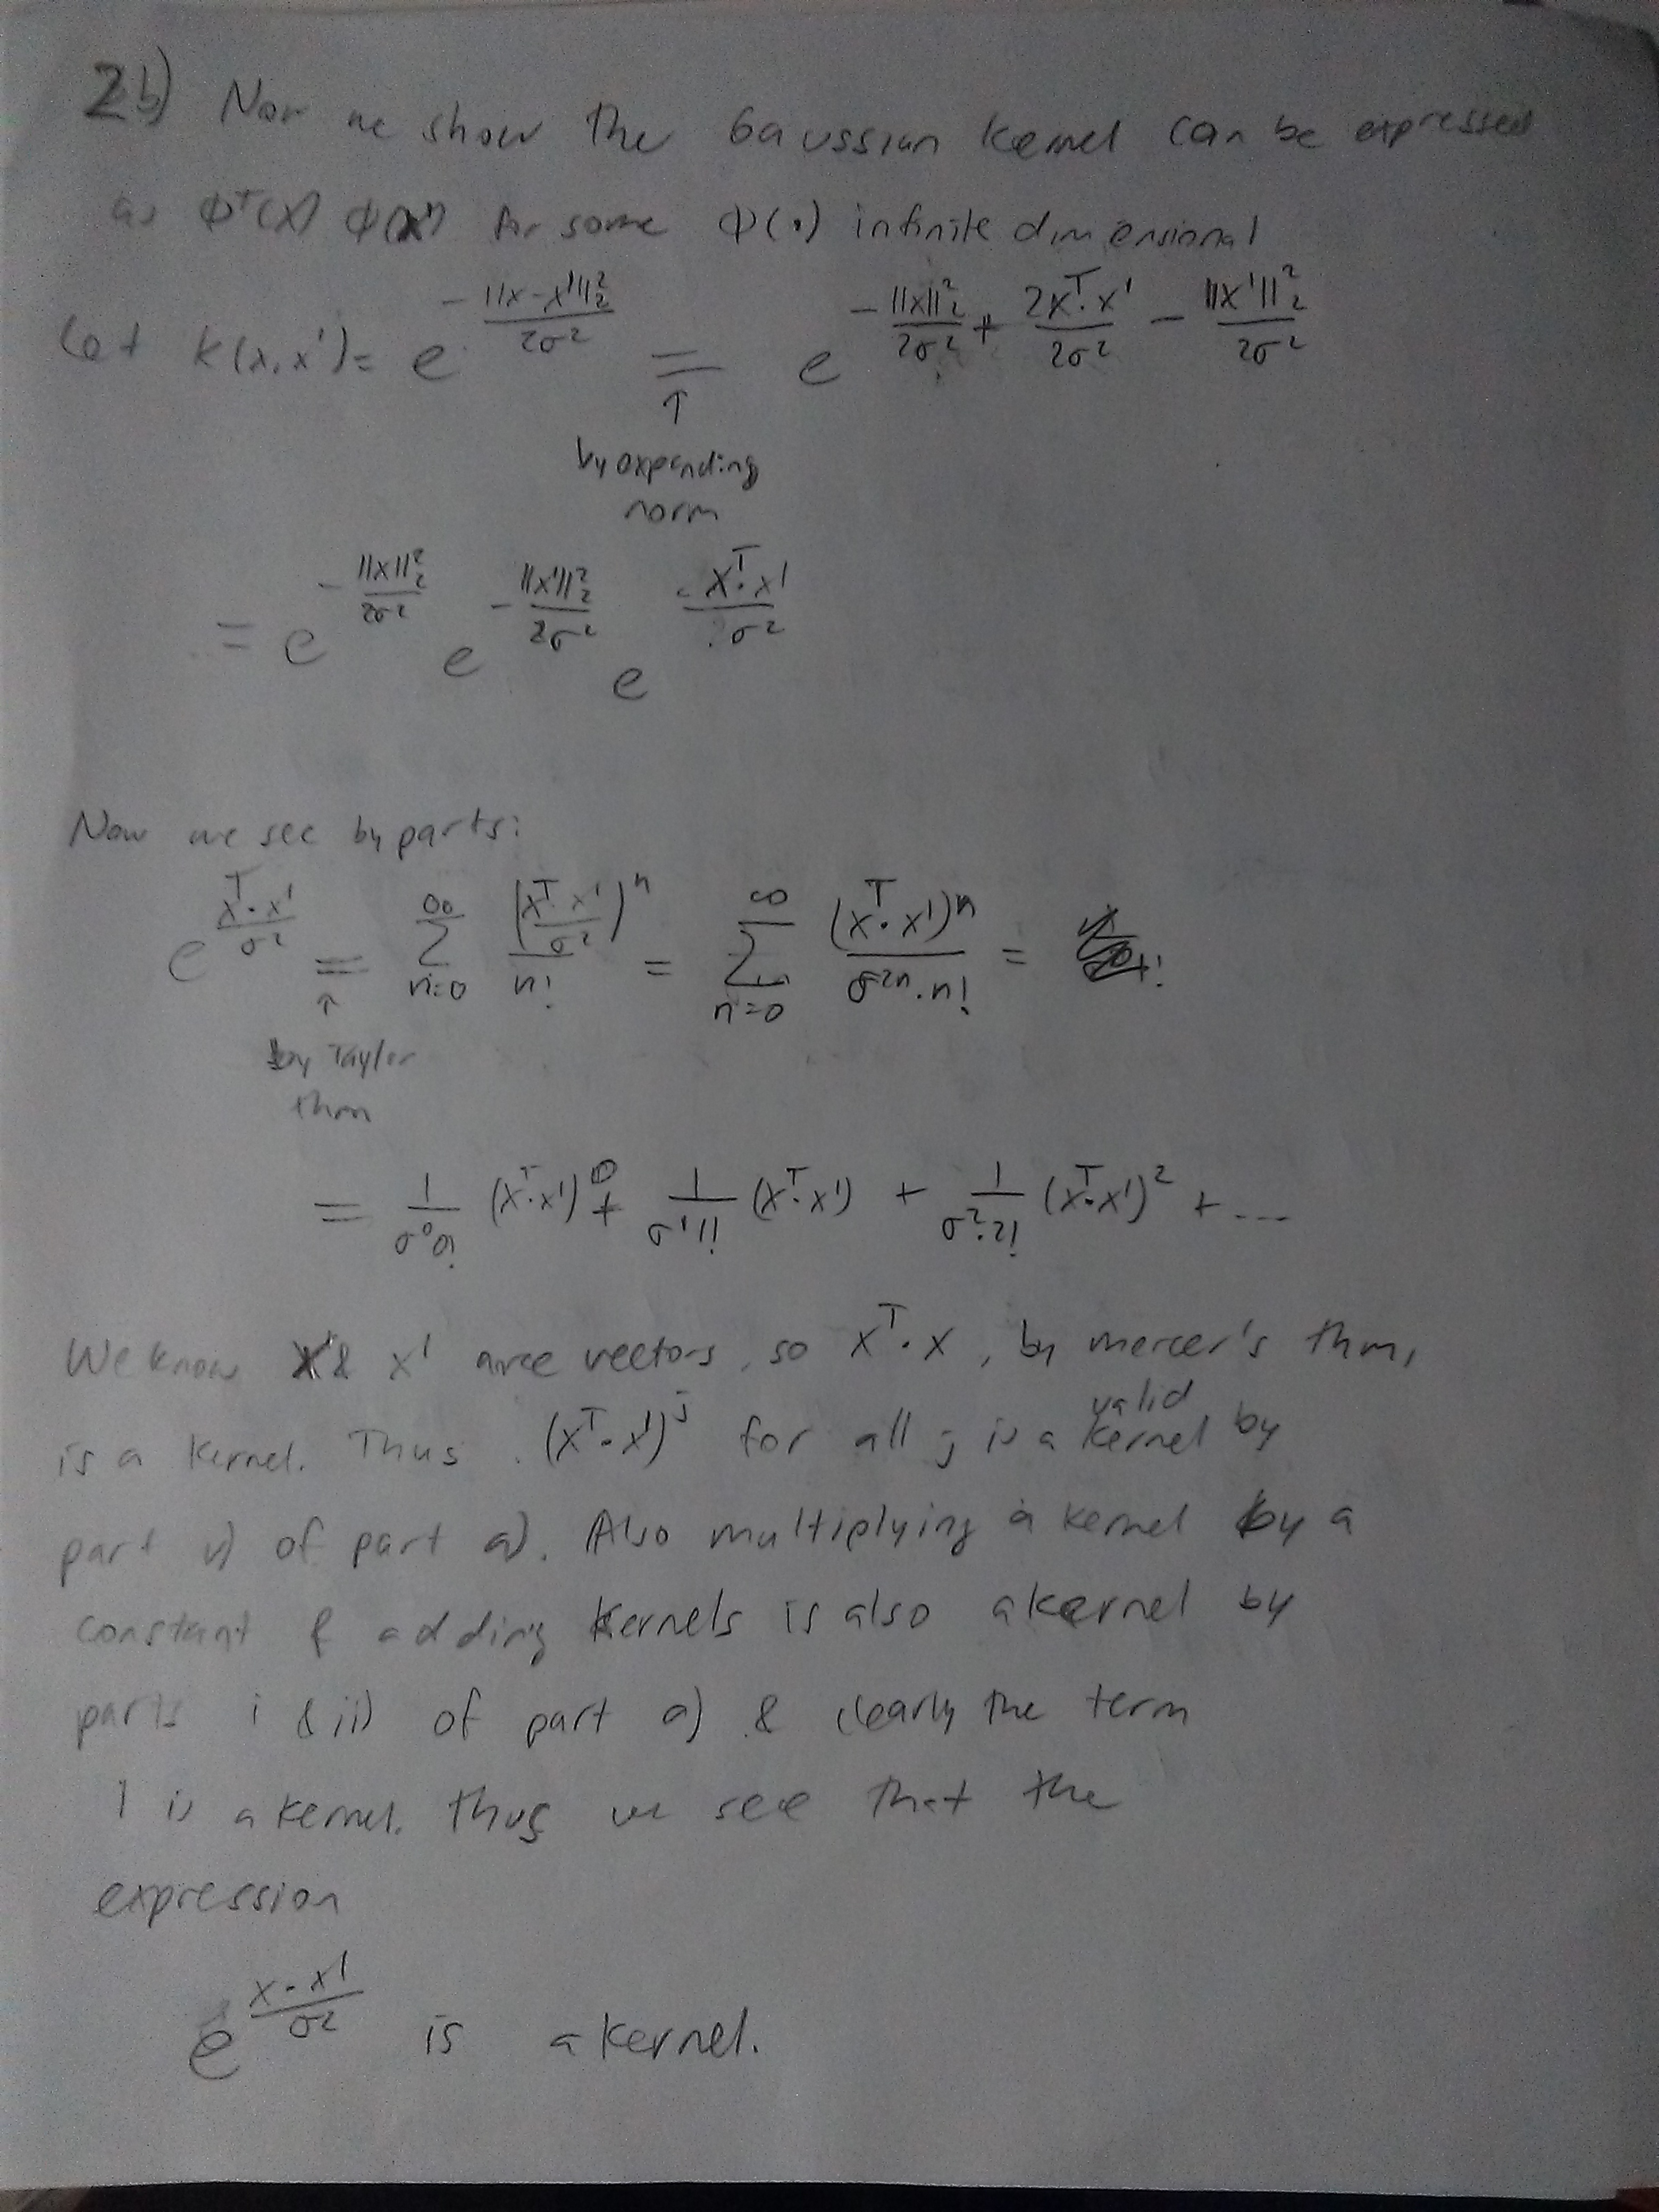 2b) Now we show the Gaussian kernel can be expressed
as Φᵀ(x) Φ(x') for some Φ(·) infinite dimensional
Let k(x,x') = e^{-||x-x'||₂²/2σ²} = e^{-||x||₂²/2σ² + 2xᵀ·x'/2σ² - ||x'||₂²/2σ²}
↑
by expanding
norm
= e^{-||x||₂²/2σ²} e^{-||x'||₂²/2σ²} e^{xᵀ·x'/σ²}
Now we see by parts:
e^{xᵀ·x'/σ²} = ∑_{n=0}^{∞} (xᵀ·x'/σ²)ⁿ/n! = ∑_{n=0}^{∞} (xᵀ·x')ⁿ/(σ²ⁿ·n!) =
↑
by Taylor
thm
= 1/(σ⁰0!) (xᵀ·x')⁰ + 1/(σ¹1!) (xᵀ·x') + 1/(σ²·2!) (xᵀ·x')² + ...
We know x & x' are vectors, so xᵀ·x, by mercer's thm,
is a kernel. Thus (xᵀ·x')ʲ for all j is a valid kernel by
part v) of part a). Also multiplying a kernel by a
constant & adding kernels is also a kernel by
parts i & ii) of part a) & clearly the term
1 is a kernel. thus we see that the
expression
e^{x·x'/σ²} is a kernel.